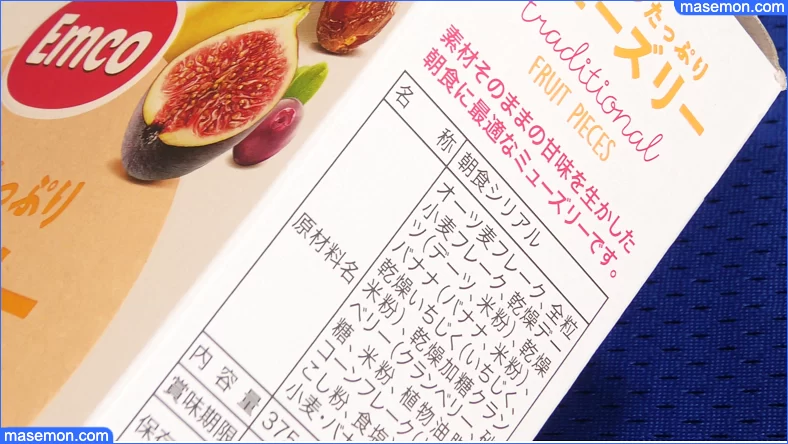 masemon.com
Emco
たっぷり
ューズリー
traditional
FRUIT PIECES
素材そのままの甘味を生かした
朝食に最適なミューズリーです。
名 称 朝食シリアル
原材料名 オーツ麦フレーク、全粒
小麦フレーク、乾燥デー
ツ（デーツ、米粉）、乾燥
バナナ（バナナ、米粉）、
乾燥いちじく（いちじく、
米粉）、乾燥加糖クラン
ベリー（クランベリー、砂
糖、米粉、植物油脂
コーンフレーク（
こし粉、食塩
小麦・バナ
内容量 375
賞味期限
保存
っぷり
masemon.com
masemon.com